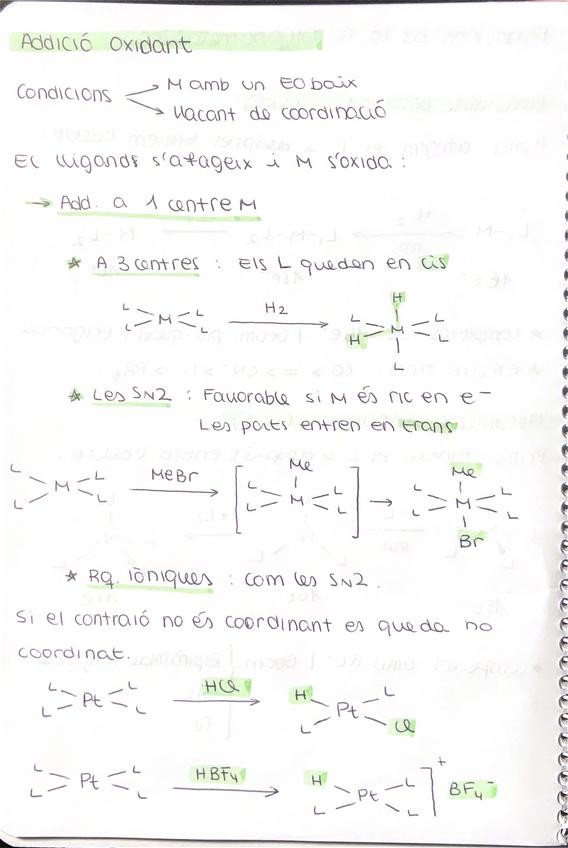 Addició Oxidant
Condicions → M amb un EO baix
→ Vacant de coordinació
El lligands s'afageix i M s'oxida :
→ Add. a 1 centre M
* A 3 centres : Els L queden en cis
L L M L L H2 H L L H M L L
* Les SN2 : Favorable si M és ric en e⁻
Les parts entren en trans
L L M L L MeBr [ Me L L M L L ] → Me L L M L L Br
* Rq. Iòniques : com les SN2.
Si el contraió no és coordinant es queda no
coordinat.
L L Pt L L HCl H L Pt L Cl
L L Pt L L HBF4 H L Pt L L ]⁺ BF4⁻